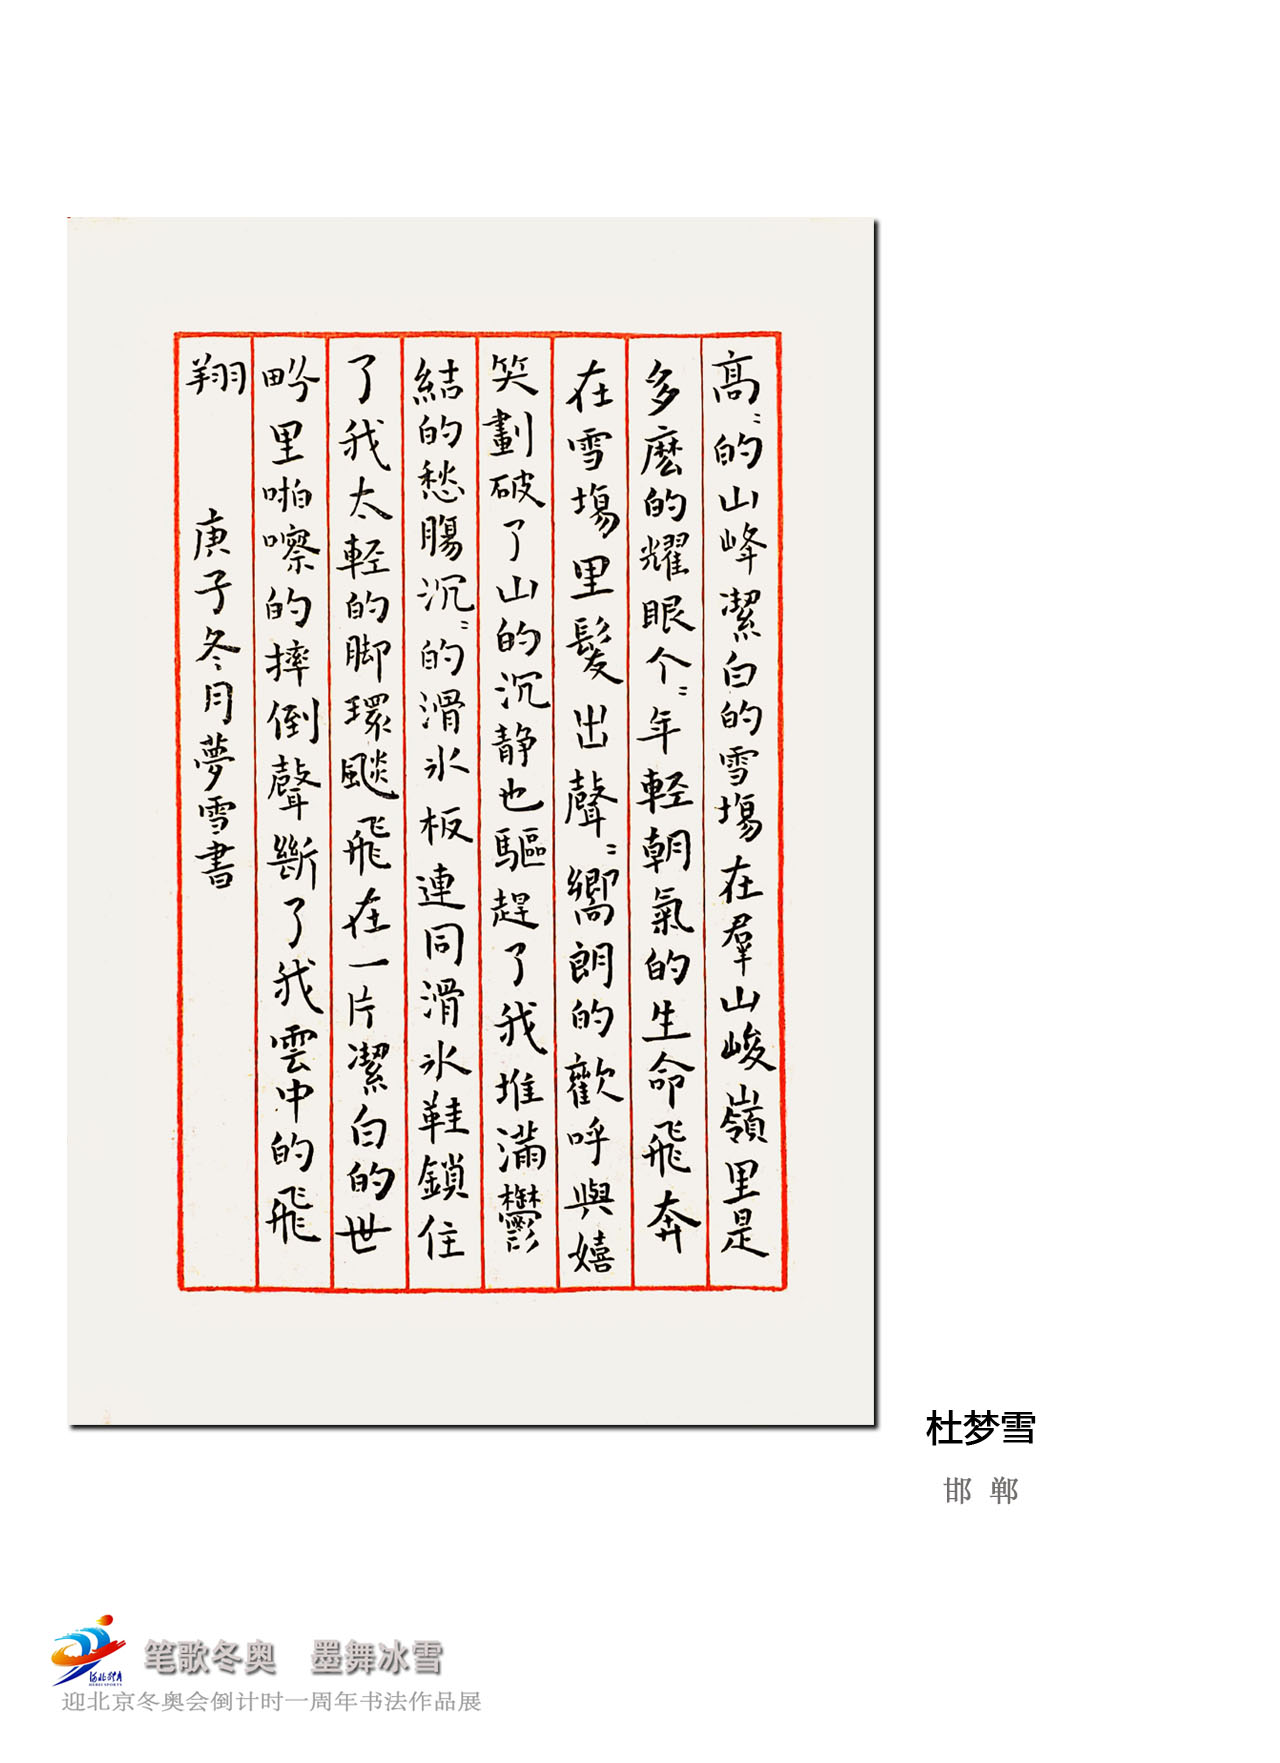 高〻的山峰潔白的雪塲在羣山峻嶺里是
多麽的耀眼个〻年軽朝氣的生命飛奔
在雪塲里髮出聲〻嚮朗的歡呼與嬉
笑劃破了山的沉静也驅趕了我堆滿鬱
結的愁腸沉〻的滑氷板連同滑氷鞋鎖住
了我太軽的脚環飈飛在一片潔白的世
畍里啪嚓的摔倒聲斷了我雲中的飛
翔 庚子冬月夢雪書
杜梦雪
邯郸
河北体育
HEBEI SPORTS
笔歌冬奥 墨舞冰雪
迎北京冬奥会倒计时一周年书法作品展